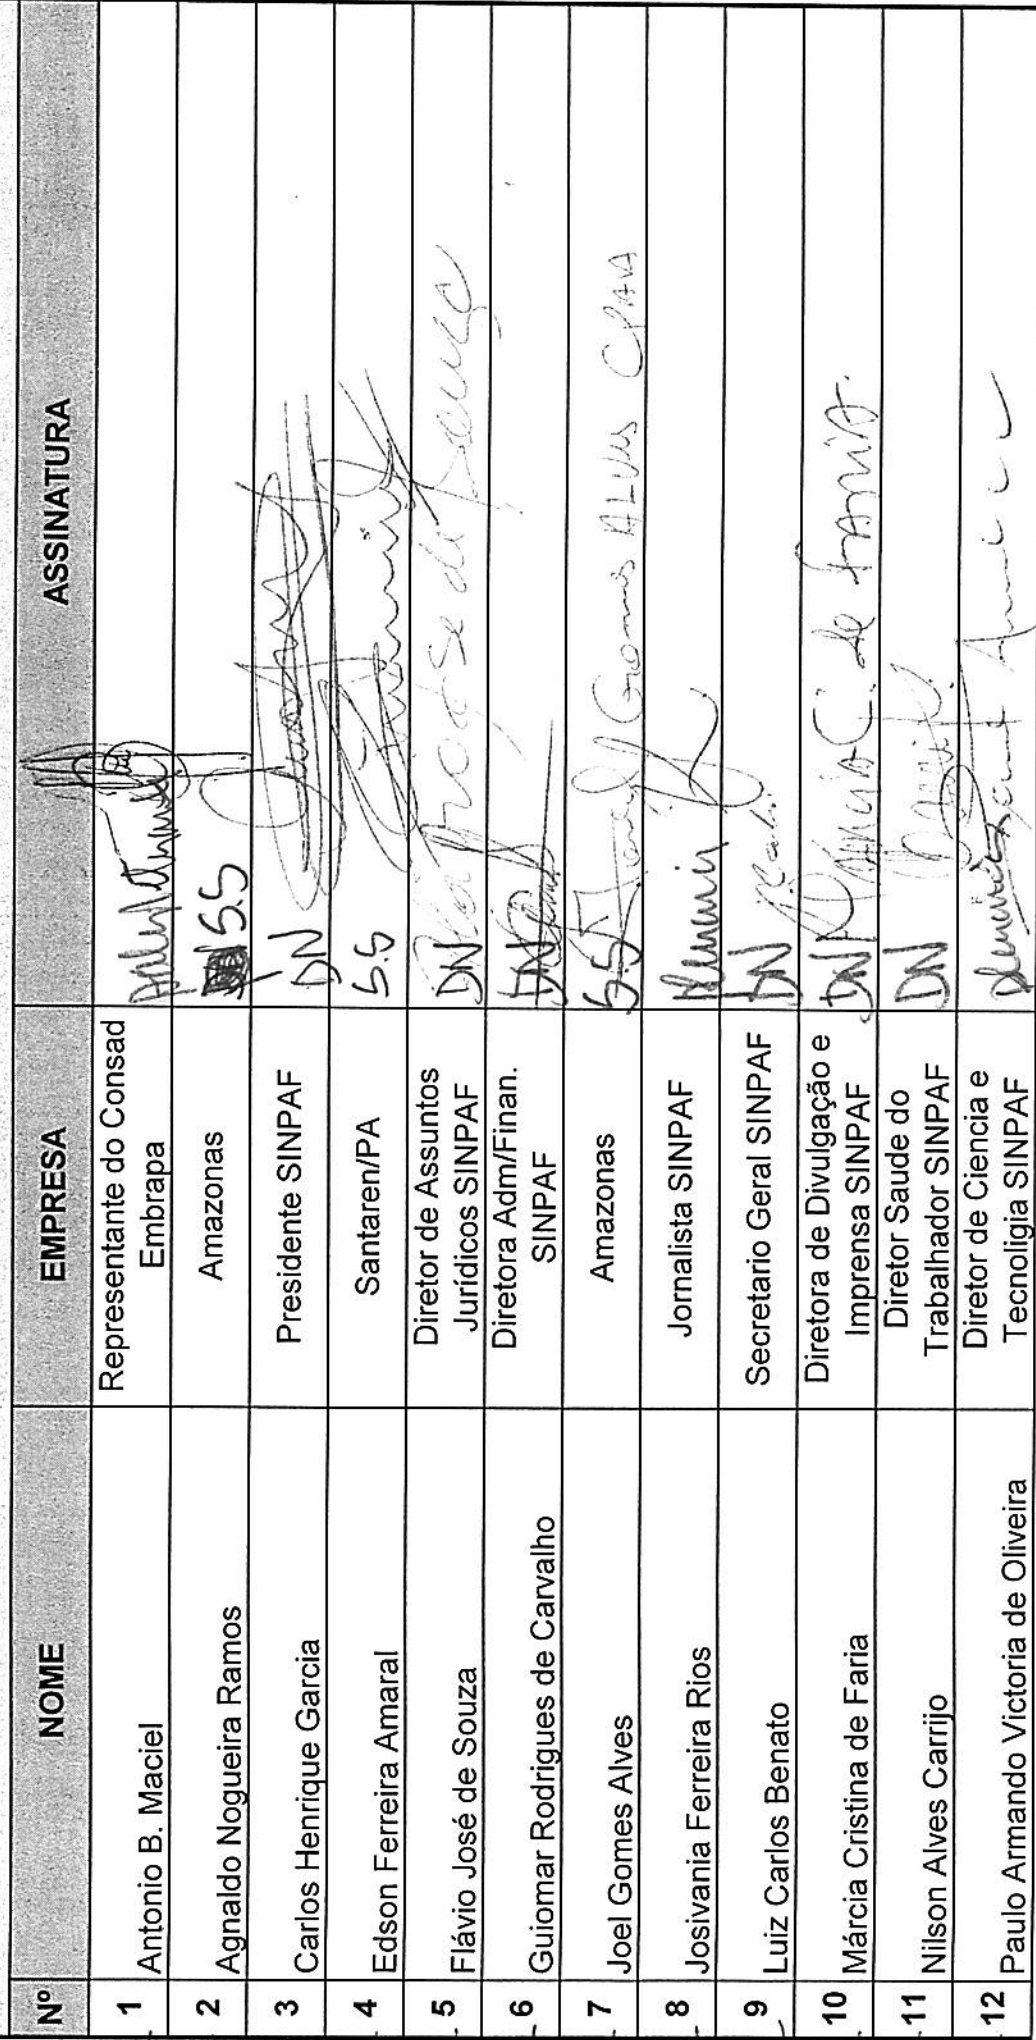 Nº NOME EMPRESA ASSINATURA
1 Antonio B. Maciel Representante do Consad
Embrapa
2 Agnaldo Nogueira Ramos Amazonas S.S
3 Carlos Henrique Garcia Presidente SINPAF DN
4 Edson Ferreira Amaral Santaren/PA S.S
5 Flávio José de Souza Diretor de Assuntos
Jurídicos SINPAF DN José de Souza
6 Guiomar Rodrigues de Carvalho Diretora Adm/Finan.
SINPAF DN
7 Joel Gomes Alves Amazonas S.S Gomes Alves
8 Josivania Ferreira Rios Jornalista SINPAF
9 Luiz Carlos Benato Secretario Geral SINPAF DN
10 Márcia Cristina de Faria Diretora de Divulgação e
Imprensa SINPAF DN Márcia C. de Faria
11 Nilson Alves Carrijo Diretor Saude do
Trabalhador SINPAF DN
12 Paulo Armando Victoria de Oliveira Diretor de Ciencia e
Tecnoligia SINPAF